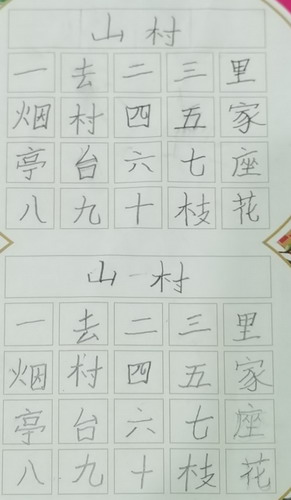 山村
一去二三里
烟村四五家
亭台六七座
八九十枝花
山村
一去二三里
烟村四五家
亭台六七座
八九十枝花